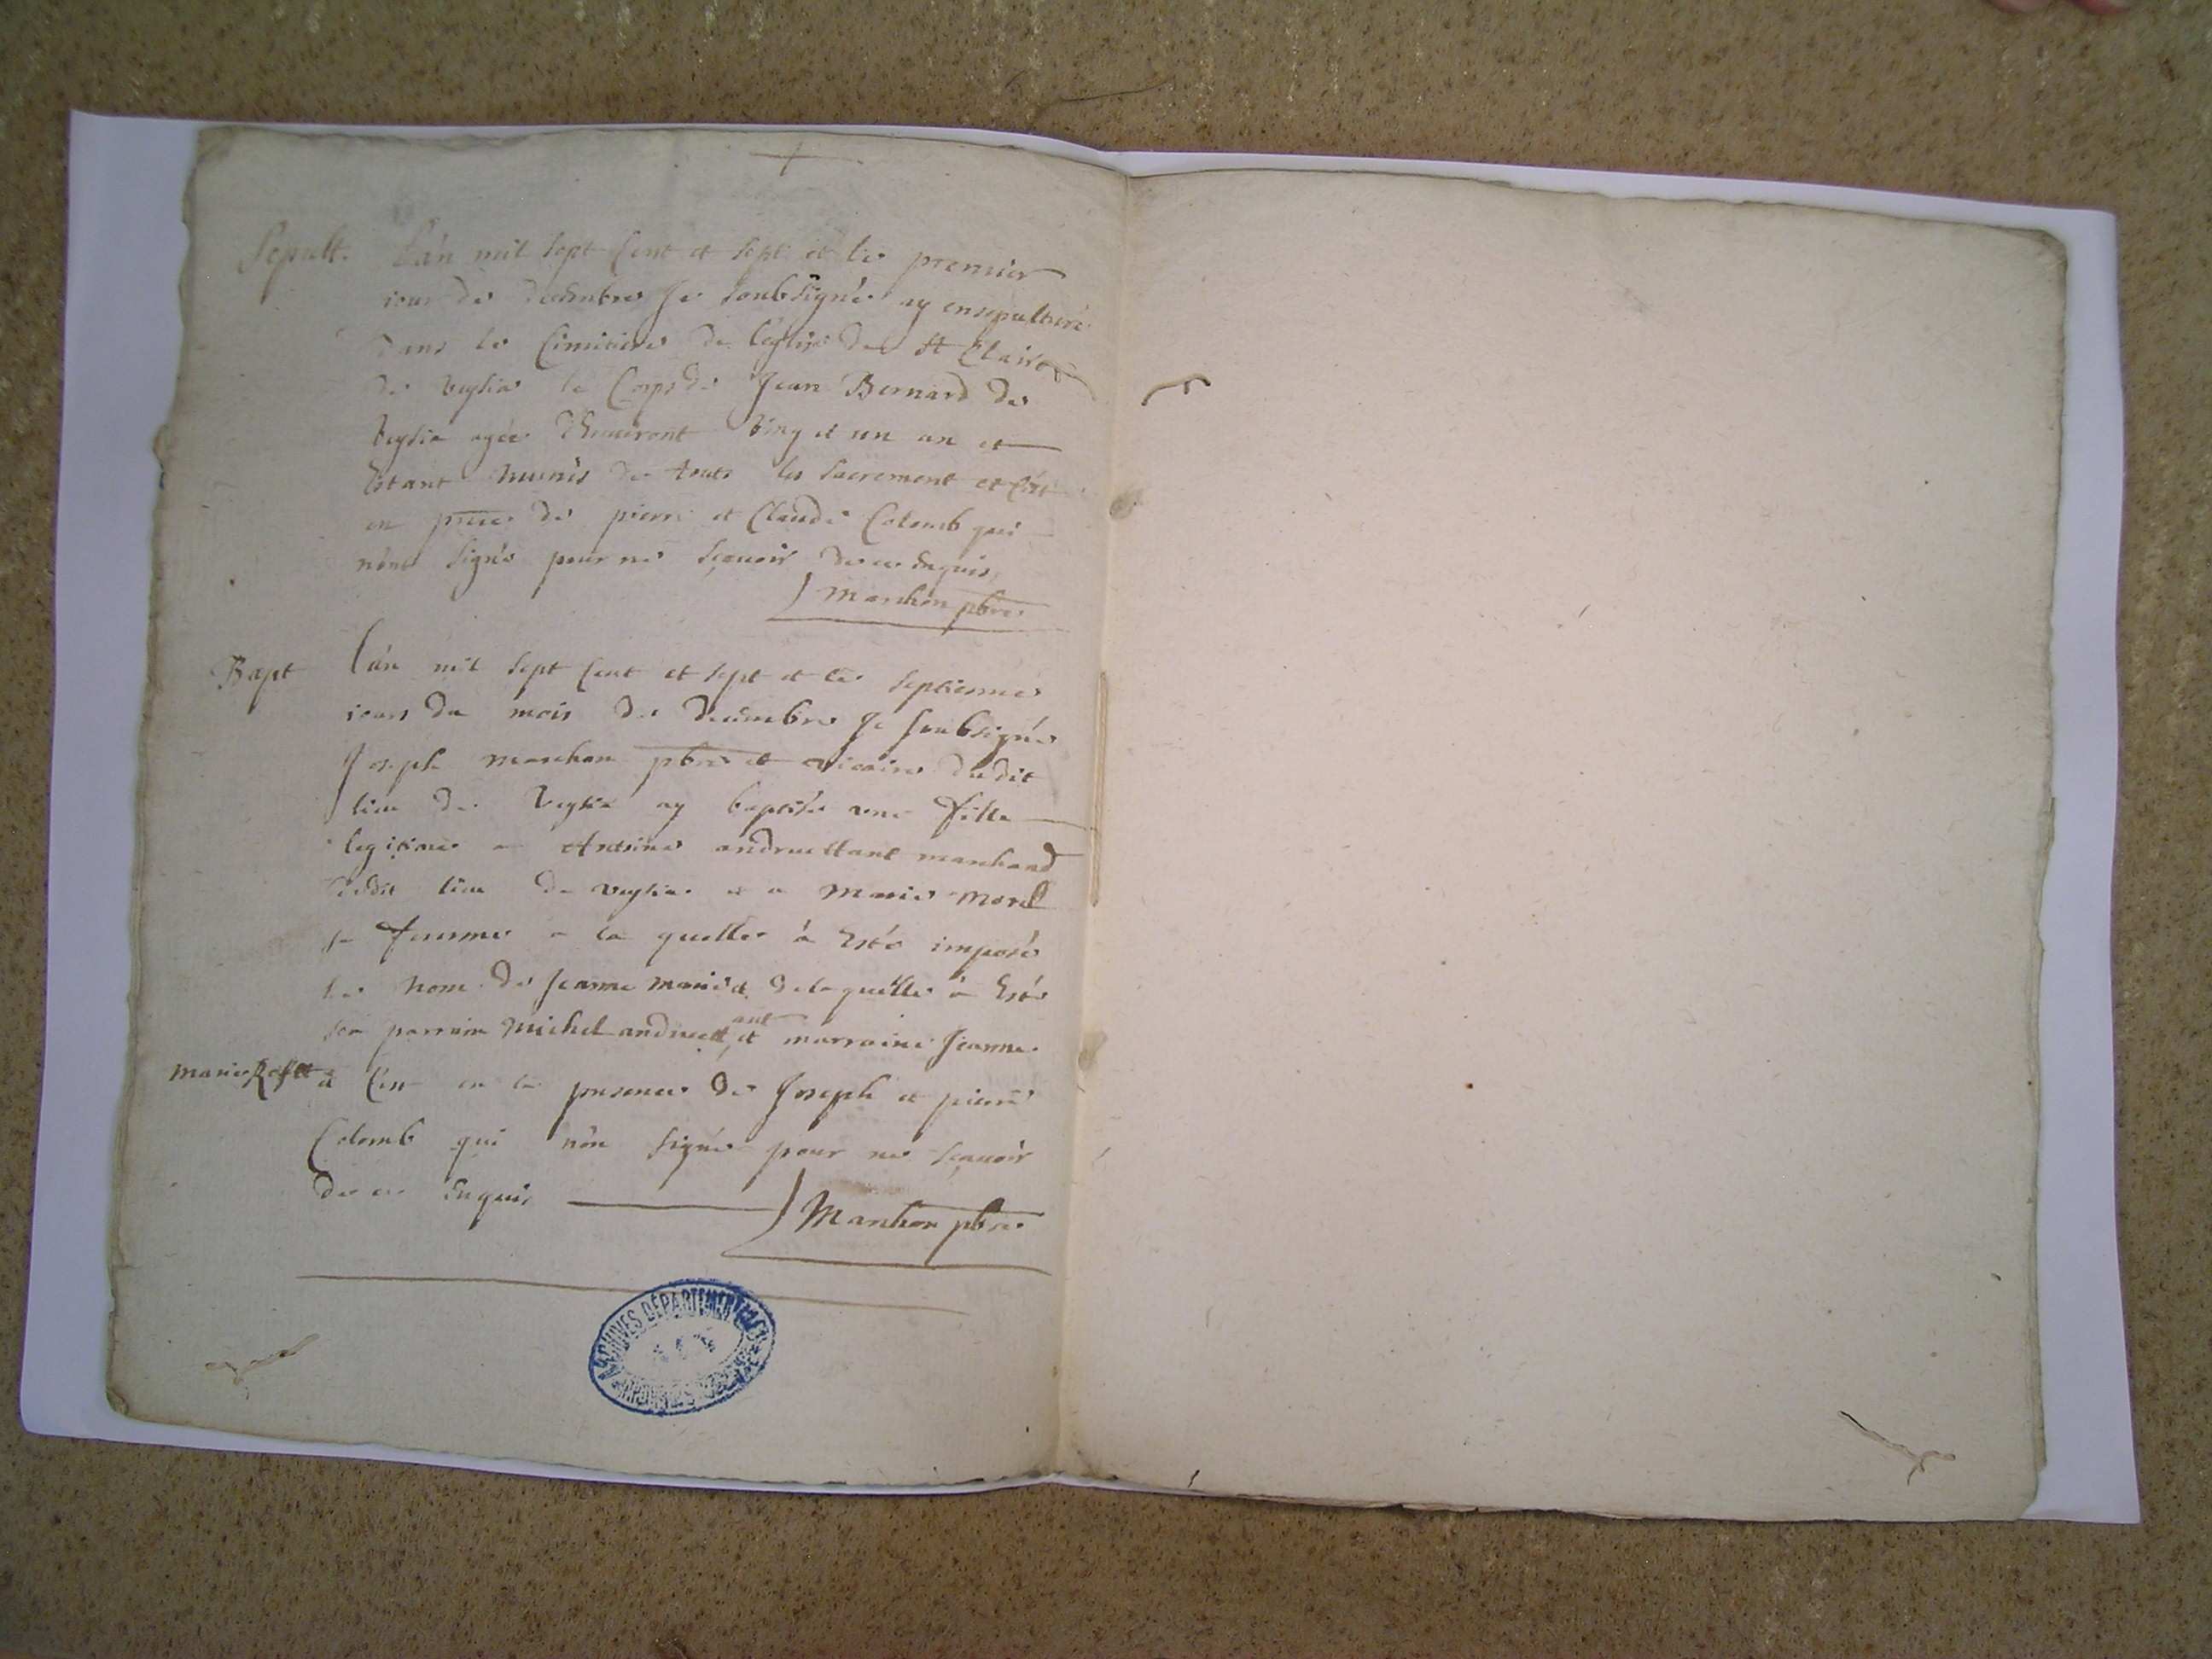 Sepult. L'an mil sept Cent et sept et le premier
iour de decembre Je soubsigné ay ensepulturé
dans le Cimitiere de l'eglise de St Claire
de veglia le Corps de Jean Bernard de
veglia agée denuiront ving et un an et
Estant munis de touts les sacrement et C'est
en pnce de pierre et Claude Colomb qui
n'ont signé pour ne sçauoir de ce Enquis
Marchon pbre
Bapt L'an mil sept Cent et sept et le septieme
iours du mois de decembre Je soubsigné
Joseph marchon pbre et vicaire dudit
lieu de Veglia ay baptisé une fille
legitime a Antoine andruettant marchand
dudit lieu de veglia et a Marie Morel
sa femme a la quelle à Esté imposé
le Nom de Jeanne marie et de laquelle à Esté
son parrain Michel andruett ant et marraine Jeanne
marie et C'est en la presence de Joseph et pierre
Colomb qui n'on signé pour ne sçauoir
de ce Enquis Marchon pbre
ARCHIVES DÉPARTEMENTALES